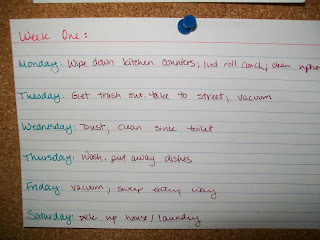 Week One:
Monday: Wipe down kitchen counters; lint roll couch; clean
Tuesday: Get trash out. take to street, vacuum
Wednesday: Dust, clean sink toilet
Thursday: Wash, put away dishes
Friday: vacuum, sweep entry way
Saturday: pick up house/laundry